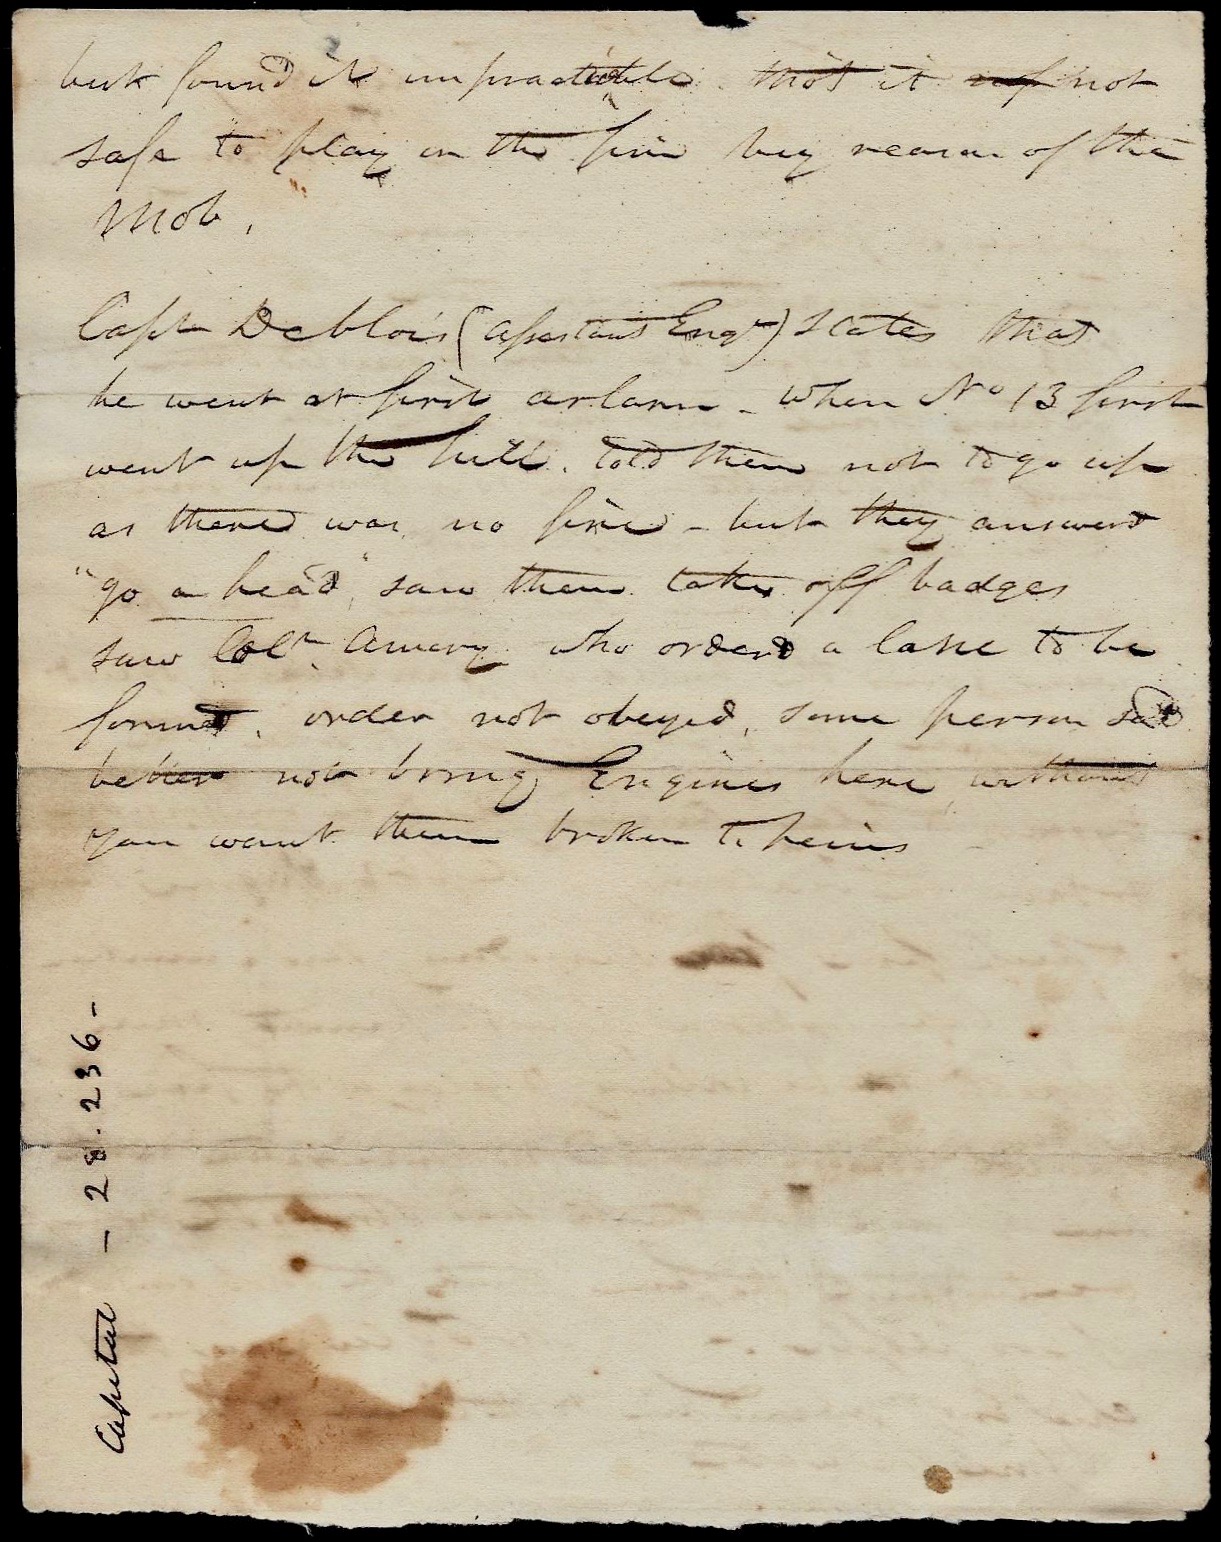 but found it impracticable. that it was not
safe to play on the fire by reason of the
Mob.
Capt Deblois (Assistant Engr) States that
he went at first arlarm - When No 13 first
went up the hill. told them not to go up
as there was no fire - but they answerd
"go a head", saw them take off badges
saw Colr. Amery who orderd a lane to be
formed, order not obeyed, some person sad
better not bring Engines here, without
you want them broken to peices
Capital - 28.236-